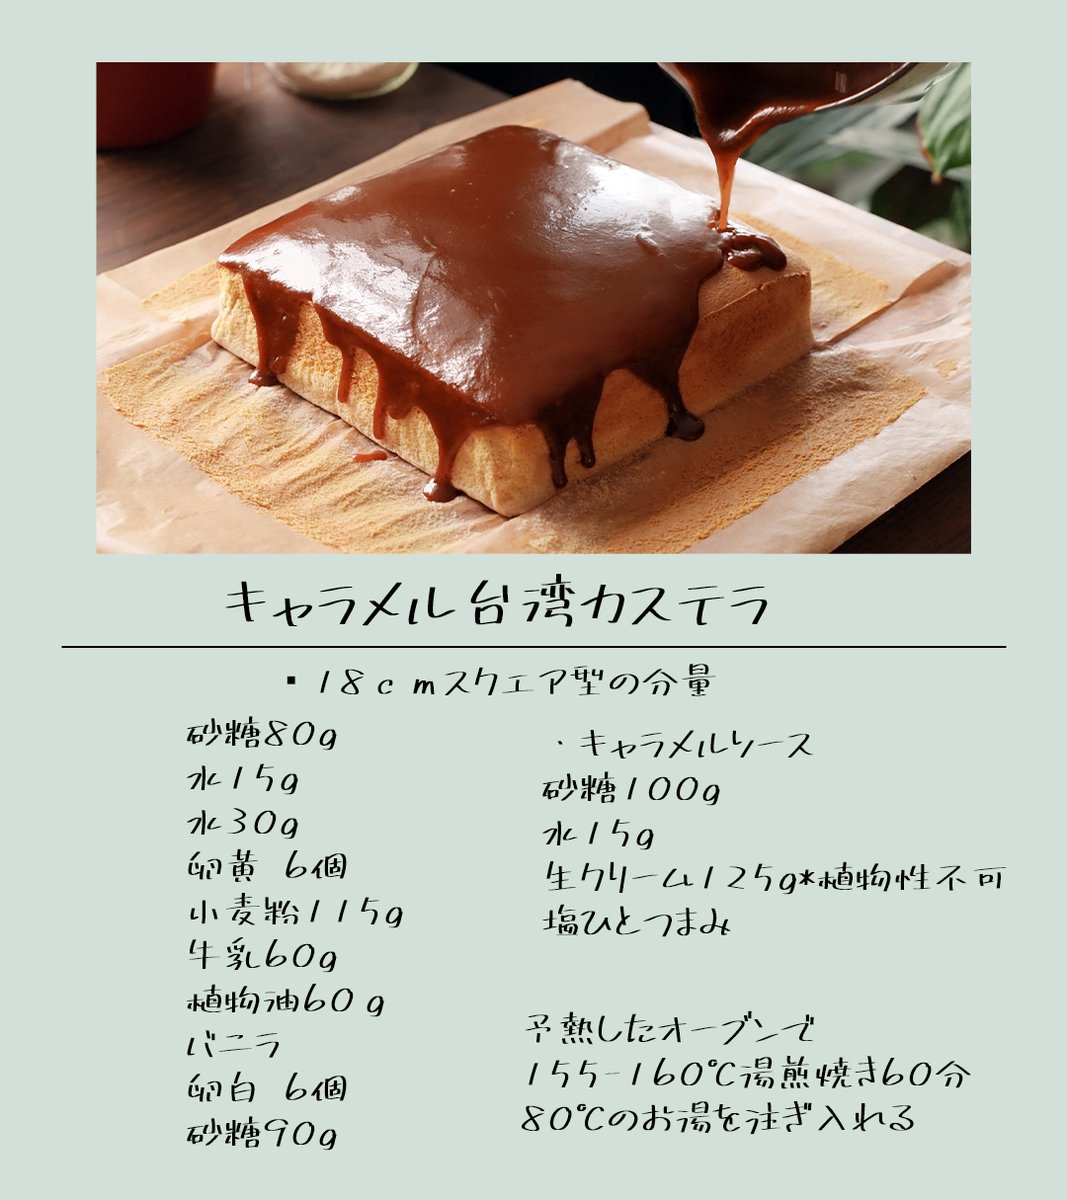 キャラメル台湾カステラ
▪18cmスクエア型の分量
砂糖80g
水15g
水30g
卵黄 6個
小麦粉115g
牛乳60g
植物油60g
バニラ
卵白 6個
砂糖90g
・キャラメルソース
砂糖100g
水15g
生クリーム125g*植物性不可
塩ひとつまみ
予熱したオーブンで
155-160℃湯煎焼き60分
80℃のお湯を注ぎ入れる